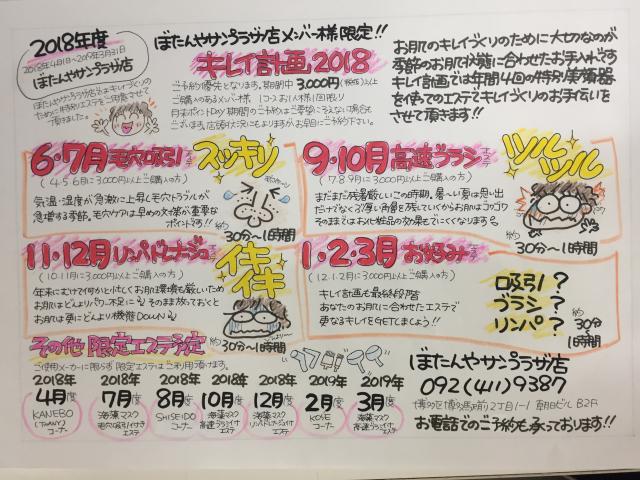 2018年度
2018年4月1日〜2019年3月31日
ぼたんやサンプラザ店
ぼたんやサンプラザ店はキレイづくりの
ために特別エステをご用意させて
頂きました。
ぼたんやサンプラザ店メンバー様限定!!
キレイ計画2018
ご予約優先となります。期間中3,000円(税抜)以上
ご購入のあるメンバー様 1コースお1人様1回限り
お肌のキレイづくりのために大切なのが
季節のお肌状態に合わせたお手入れです
キレイ計画では年間4回の特別美容器
を使ってのエステでキレイづくりのお手伝いを
させて頂きます!!
6・7月 毛穴吸引エステ
スッキリ
(4.5.6月に3,000円以上ご購入の方)
気温・湿度が急激に上昇し毛穴トラブルが
急増する季節。毛穴ケアは早めの対策が重要な
ポイントです!!
約30分〜1時間
9・10月 高速ブラシエステ
ツルツル
(7.8.9月に3,000円以上ご購入の方)
まだまだ残暑厳しいこの時期。暑〜い夏は思い出
だけでなく厚い角質を残していくからお肌はゴワゴワ
そのままではお化粧品の効果もでにくくなります
約30分〜1時間
11・12月 リンパドレナージュエステ
イキイキ
(10.11月に3,000円以上ご購入の方)
年末にむけて何かと忙しくお肌環境も厳しいため
お肌はどんよりパワー不足に そのまま放っておくと
お肌は更にどんより機能DOWN
約30分〜1時間
1・2・3月 お好みエステ
(12.1.2月に3,000円以上ご購入の方)
キレイ計画も最終段階
あなたのお肌に合わせたエステで
更なるキレイをGETしましょう!!
吸引?
ブラシ?
リンパ?
約30分〜1時間
その他 限定エステ予定
ご使用メーカーに限らず限定エステはご利用頂けます。
2018年 4月度 KANEBO (TWANY) コーナー
2018年 7月度 海藻マスク 毛穴吸引付きエステ
2018年 8月度 SHISEIDO コーナー
2018年 10月度 海藻マスク 高速ブラシ付エステ
2018年 12月度 海藻マスク リンパドレナージュ付エステ
2019年 2月度 KOSE コーナー
2019年 3月度 海藻マスク 高速ブラシ付エステ
ぼたんやサンプラザ店
092(411)9387
博多区博多駅前2丁目1-1 朝日ビルB2F
お電話でのご予約も承っております!!